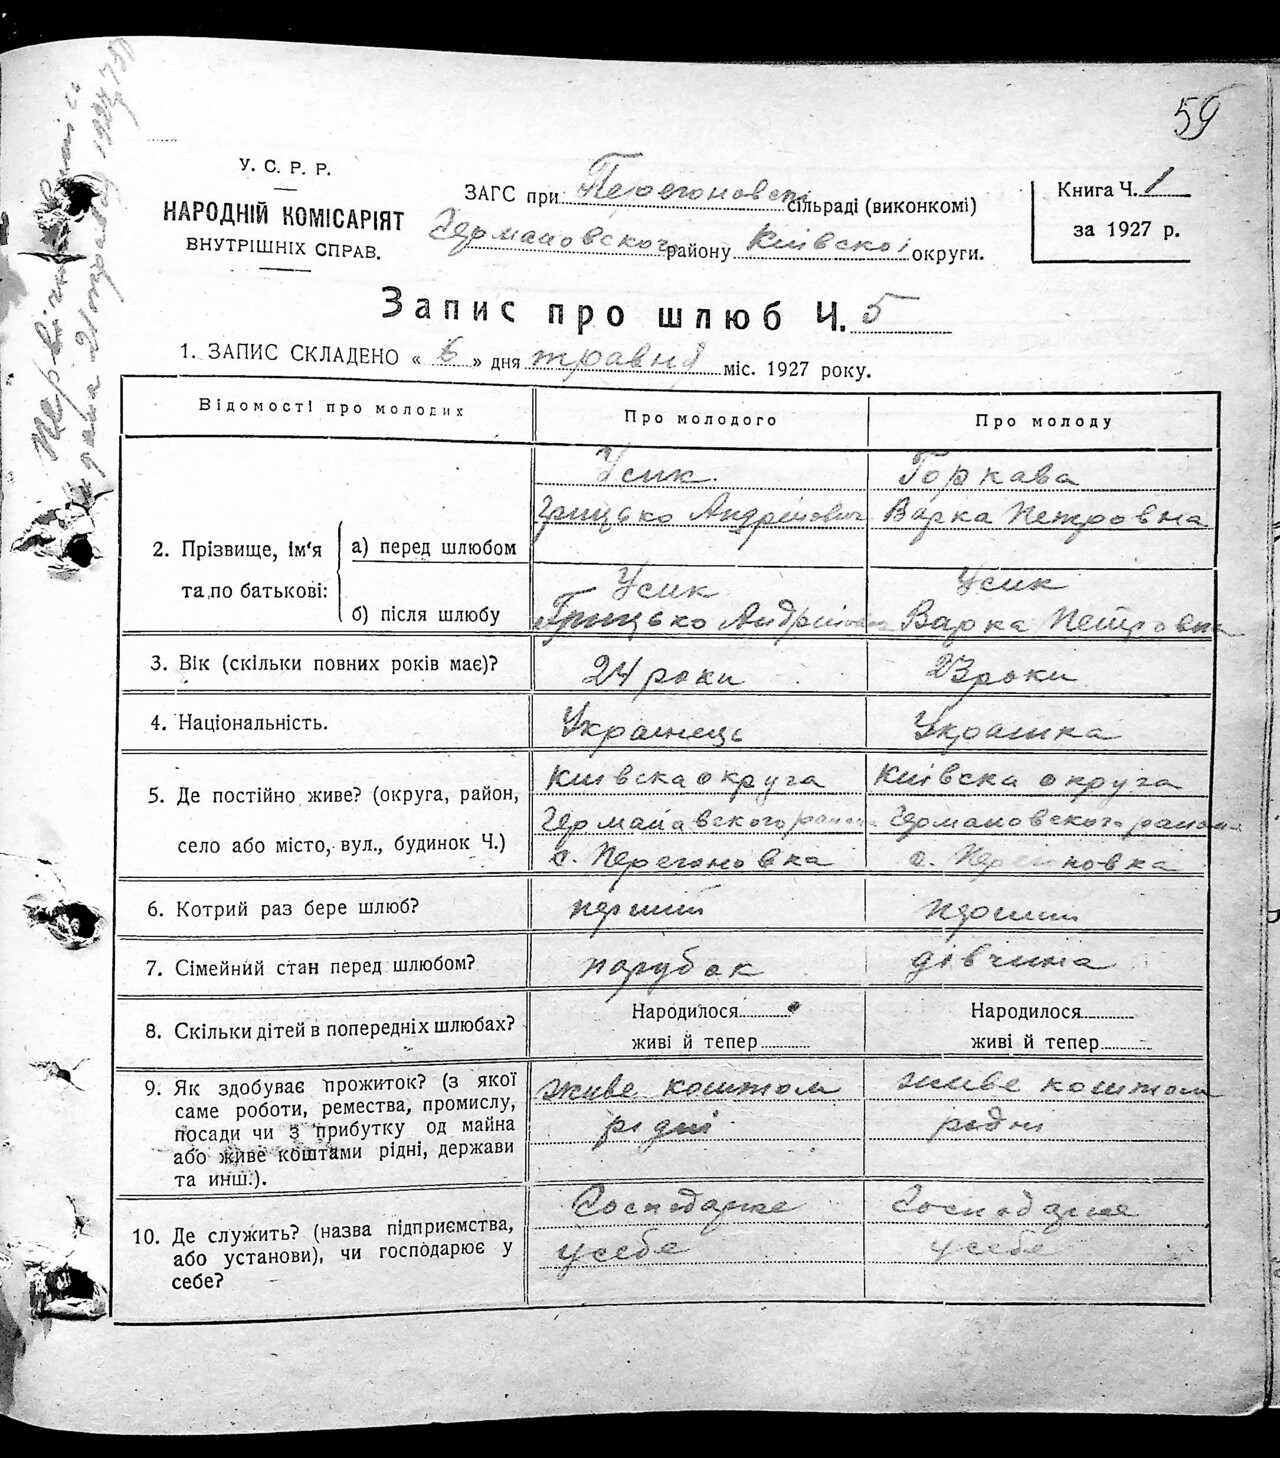 59
У. С. Р. Р.
НАРОДНІЙ КОМІСАРІЯТ
ВНУТРІШНІХ СПРАВ.
ЗАГС при Перегоновскі сільраді (виконкомі)
Германовского району Київскоі округи.
Книга Ч. 1
за 1927 р.
Запис про шлюб Ч. 5
1. ЗАПИС СКЛАДЕНО « 6 » дня травня міс. 1927 року.
Відомості про молодих
Про молодого
Про молоду
Усик
Горкава
Грицько Андрійович
Варка Петровна
2. Прізвище, ім'я та по батькові:
а) перед шлюбом
б) після шлюбу
Усик
Грицько Андрійович
Усик
Варка Петровна
3. Вік (скільки повних років має)?
24 роки
23 роки
4. Національність.
Українець
Українка
5. Де постійно живе? (округа, район,
село або місто, вул., будинок Ч.)
Київска округа
Германовского района
с. Перегоновка
Київска округа
Германовского района
с. Перегоновка
6. Котрий раз бере шлюб?
перший
перший
7. Сімейний стан перед шлюбом?
парубок
дівчина
8. Скільки дітей в попередніх шлюбах?
Народилося
живі й тепер
Народилося
живі й тепер
9. Як здобуває прожиток? (з якої
саме роботи, ремества, промислу,
посади чи з прибутку од майна
або живе коштами рідні, держави
та инш.).
живе коштом
рідні
живе коштом
рідні
10. Де служить? (назва підприємства,
або установи), чи господарює у
себе?
Господарює
у себе
Господарює
у себе